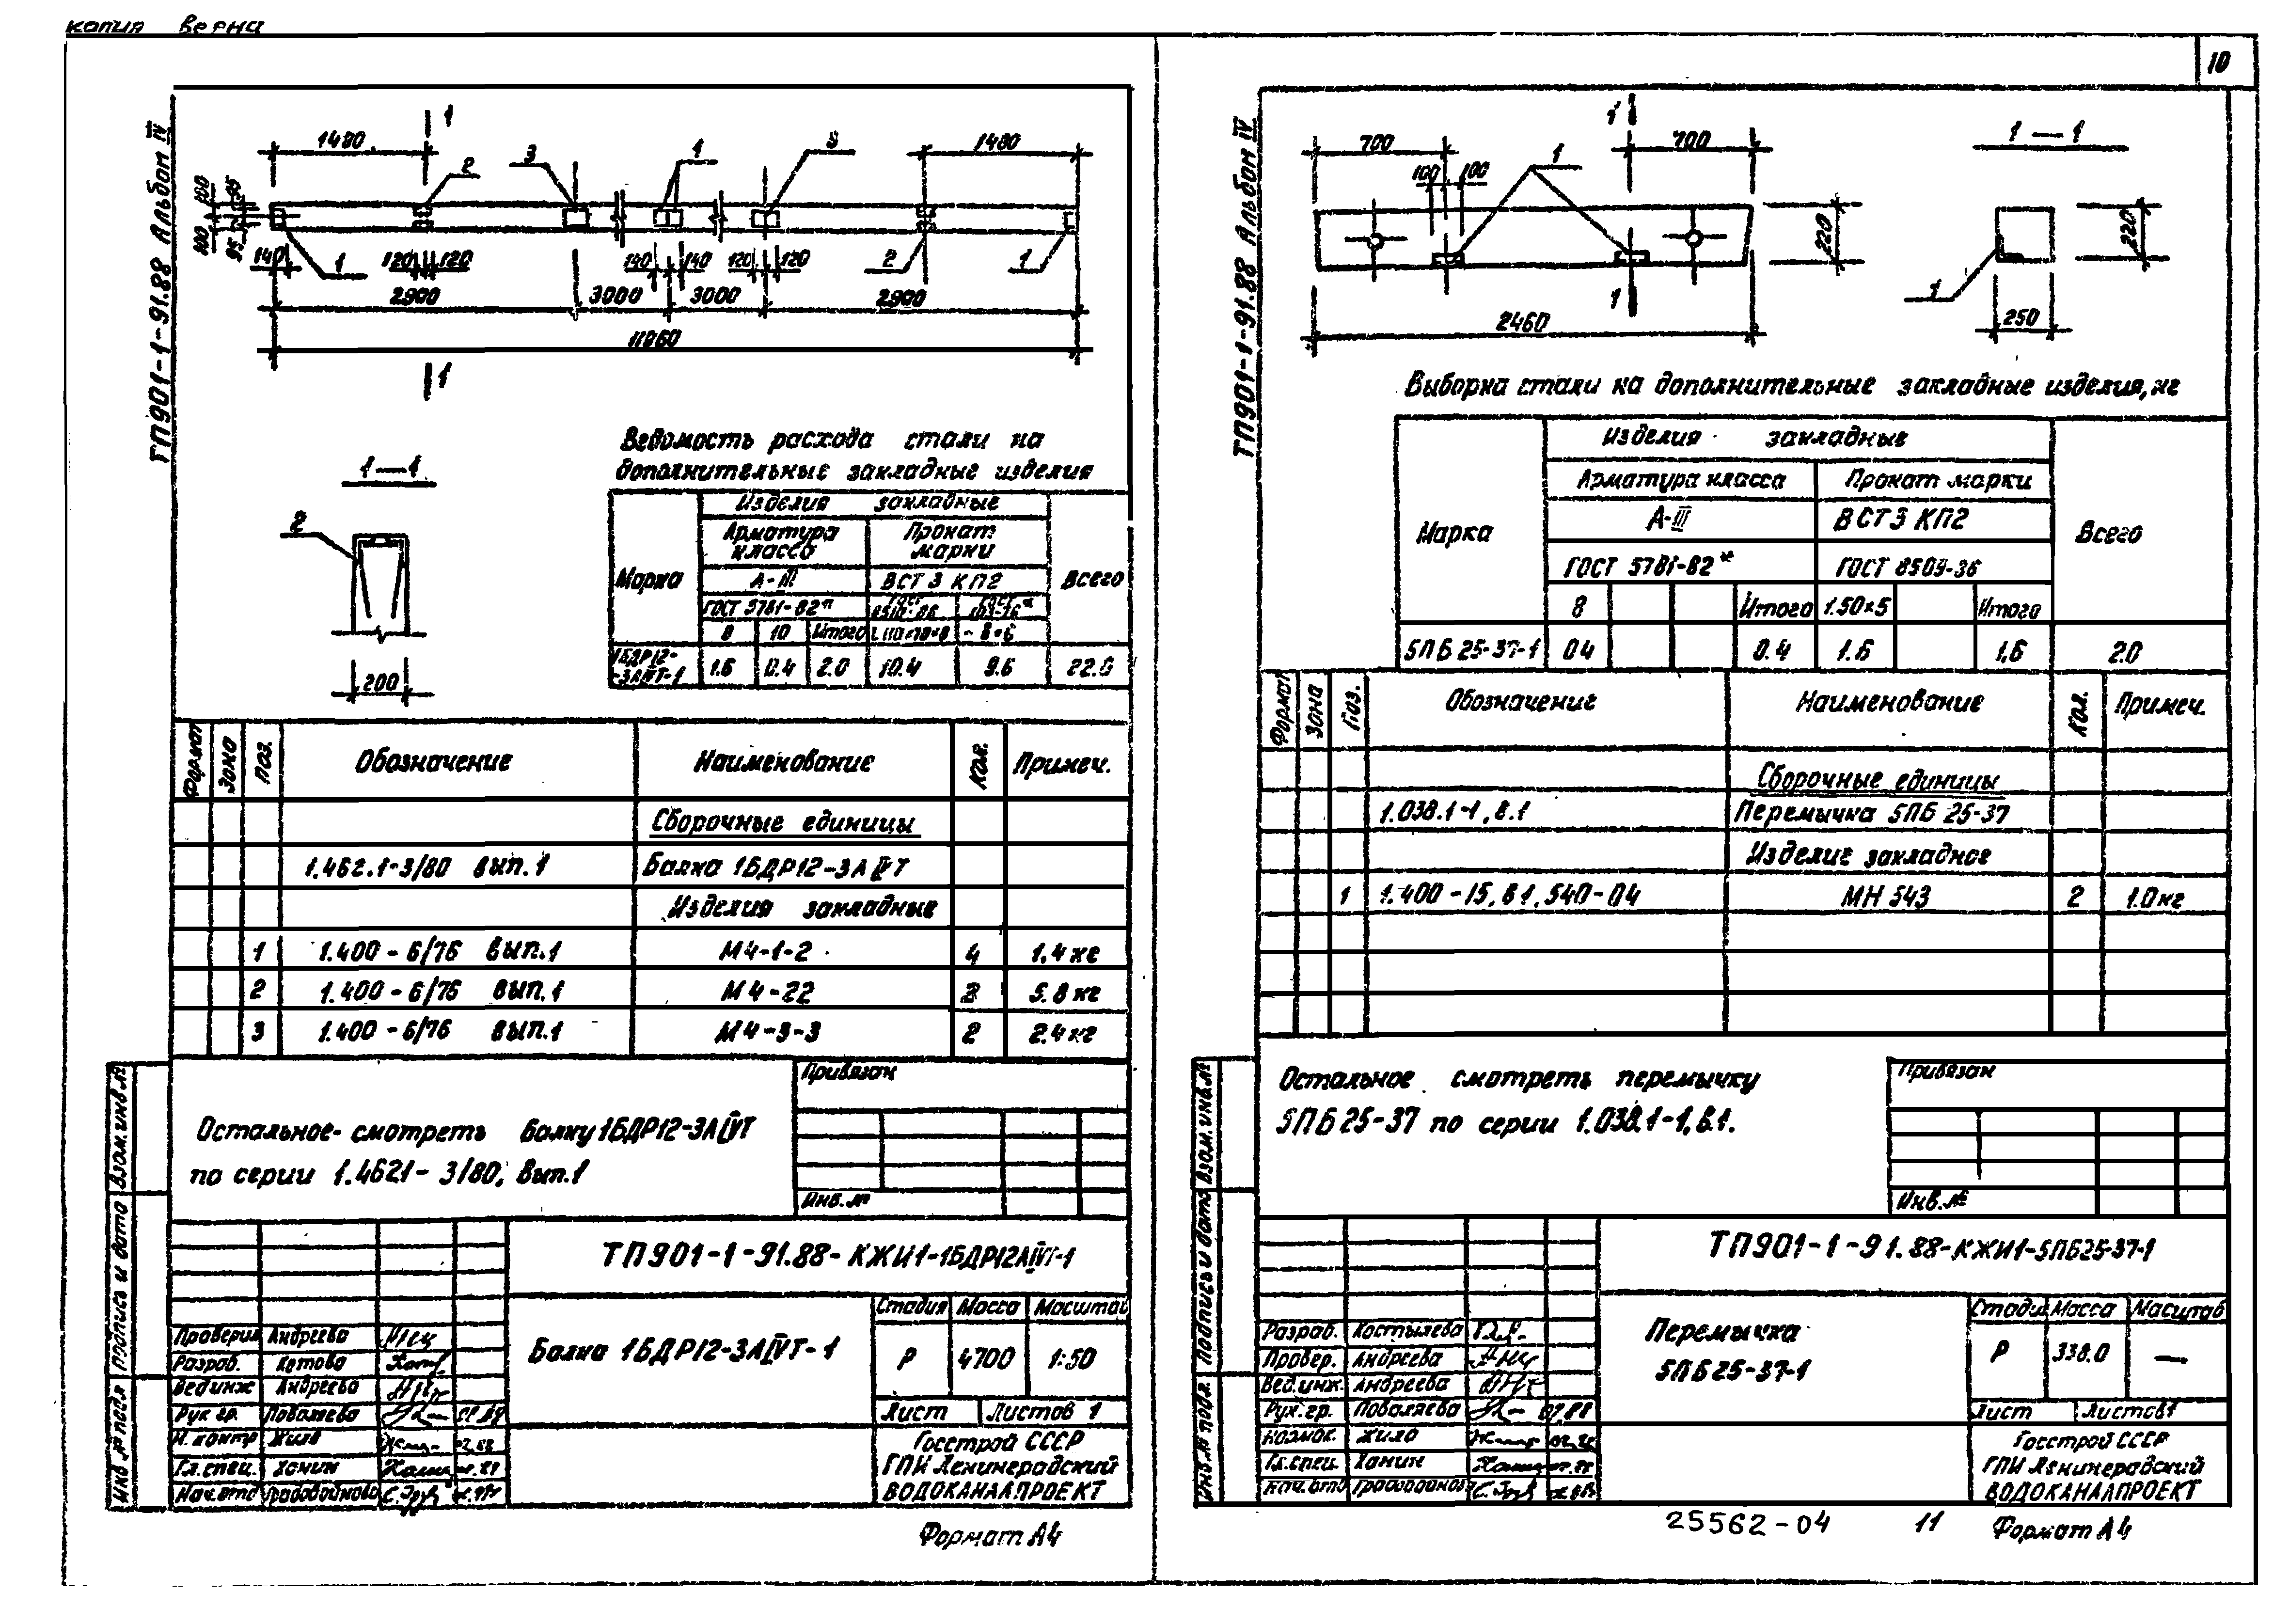 копия верна
10
ТП901-1-91.88 Альбом IV
1480
1
2
3
1
3
1480
100
95
100
95
140
1
120
120
140
140
120
120
2
1
2900
3000
3000
2900
11960
1
1—1
2
200
Ведомость расхода стали на
дополнительные закладные изделия
Марка
Изделия закладные
Всего
Арматура класса
Прокат марки
А-III
ВСТ 3 КП2
ГОСТ 5781-82*
8
10
Итого
1БДР12-
-3АIVТ-1
1.6
0.4
2.0
10.4
9.6
22.0
Формат
Зона
Поз.
Обозначение
Наименование
Кол.
Примеч.
Сборочные единицы
1.462.1-3/80 вып.1
Балка 1БДР12-3АIVТ
Изделия закладные
1
1.400-6/76 вып.1
М4-1-2
4
1,4 кг
2
1.400-6/76 вып.1
М4-22
5.8 кг
3
1.400-6/76 вып.1
М4-3-3
2
2.4 кг
Остальное смотреть балку 1БДР12-3АIVТ
по серии 1.4621-3/80, вып.1
Привязан
Инв.№
Взам.инв.№
Подпись и дата
Инв.№ подл
ТП901-1-91.88-КЖИ1-1БДР12АIVТ-1
Проверил Андреева
Разраб. Котова
Вед.инж Андреева
Рук гр. Поваляева
Н.контр Жила
Гл.спец. Ханин
Нач.отд
Балка 1БДР12-3АIVТ-1
Стадия
Масса
Масштаб
Р
4700
1:50
Лист
Листов 1
Госстрой СССР
ГПИ Ленинградский
ВОДОКАНАЛПРОЕКТ
Формат А4
ТП901-1-91.88 Альбом IV
700
1
700
100
100
1
220
1
2460
1—1
220
1
250
Выборка стали на дополнительные закладные изделия, кг
Марка
Изделия закладные
Всего
Арматура класса
Прокат марки
А-III
ВСТ3 КП2
ГОСТ 5781-82*
ГОСТ 8509-86
8
Итого
L50×5
Итого
5ПБ 25-37-1
04
0.4
1.6
1.6
2.0
Формат
Зона
Поз.
Обозначение
Наименование
Кол.
Примеч.
Сборочные единицы
1.038.1-1, в.1
Перемычка 5ПБ 25-37
Изделие закладное
1
1.400-15, в1, 540-04
МН 543
2
1.0 кг
Остальное смотреть перемычку
5ПБ 25-37 по серии 1.038.1-1, в.1.
Привязан
Инв.№
Взам.инв.№
Подпись и дата
Инв.№ подл.
ТП901-1-91.88-КЖИ1-5ПБ25-37-1
Разраб. Костылева
Провер. Андреева
Вед.инж. Андреева
Рук.гр. Поваляева
Жила
Гл.спец. Ханин
Нач.отд
Перемычка
5ПБ25-37-1
Стадия
Масса
Масштаб
Р
338.0
—
Лист
Листов 1
Госстрой СССР
ГПИ Ленинградский
ВОДОКАНАЛПРОЕКТ
25562-04
11
Формат А4